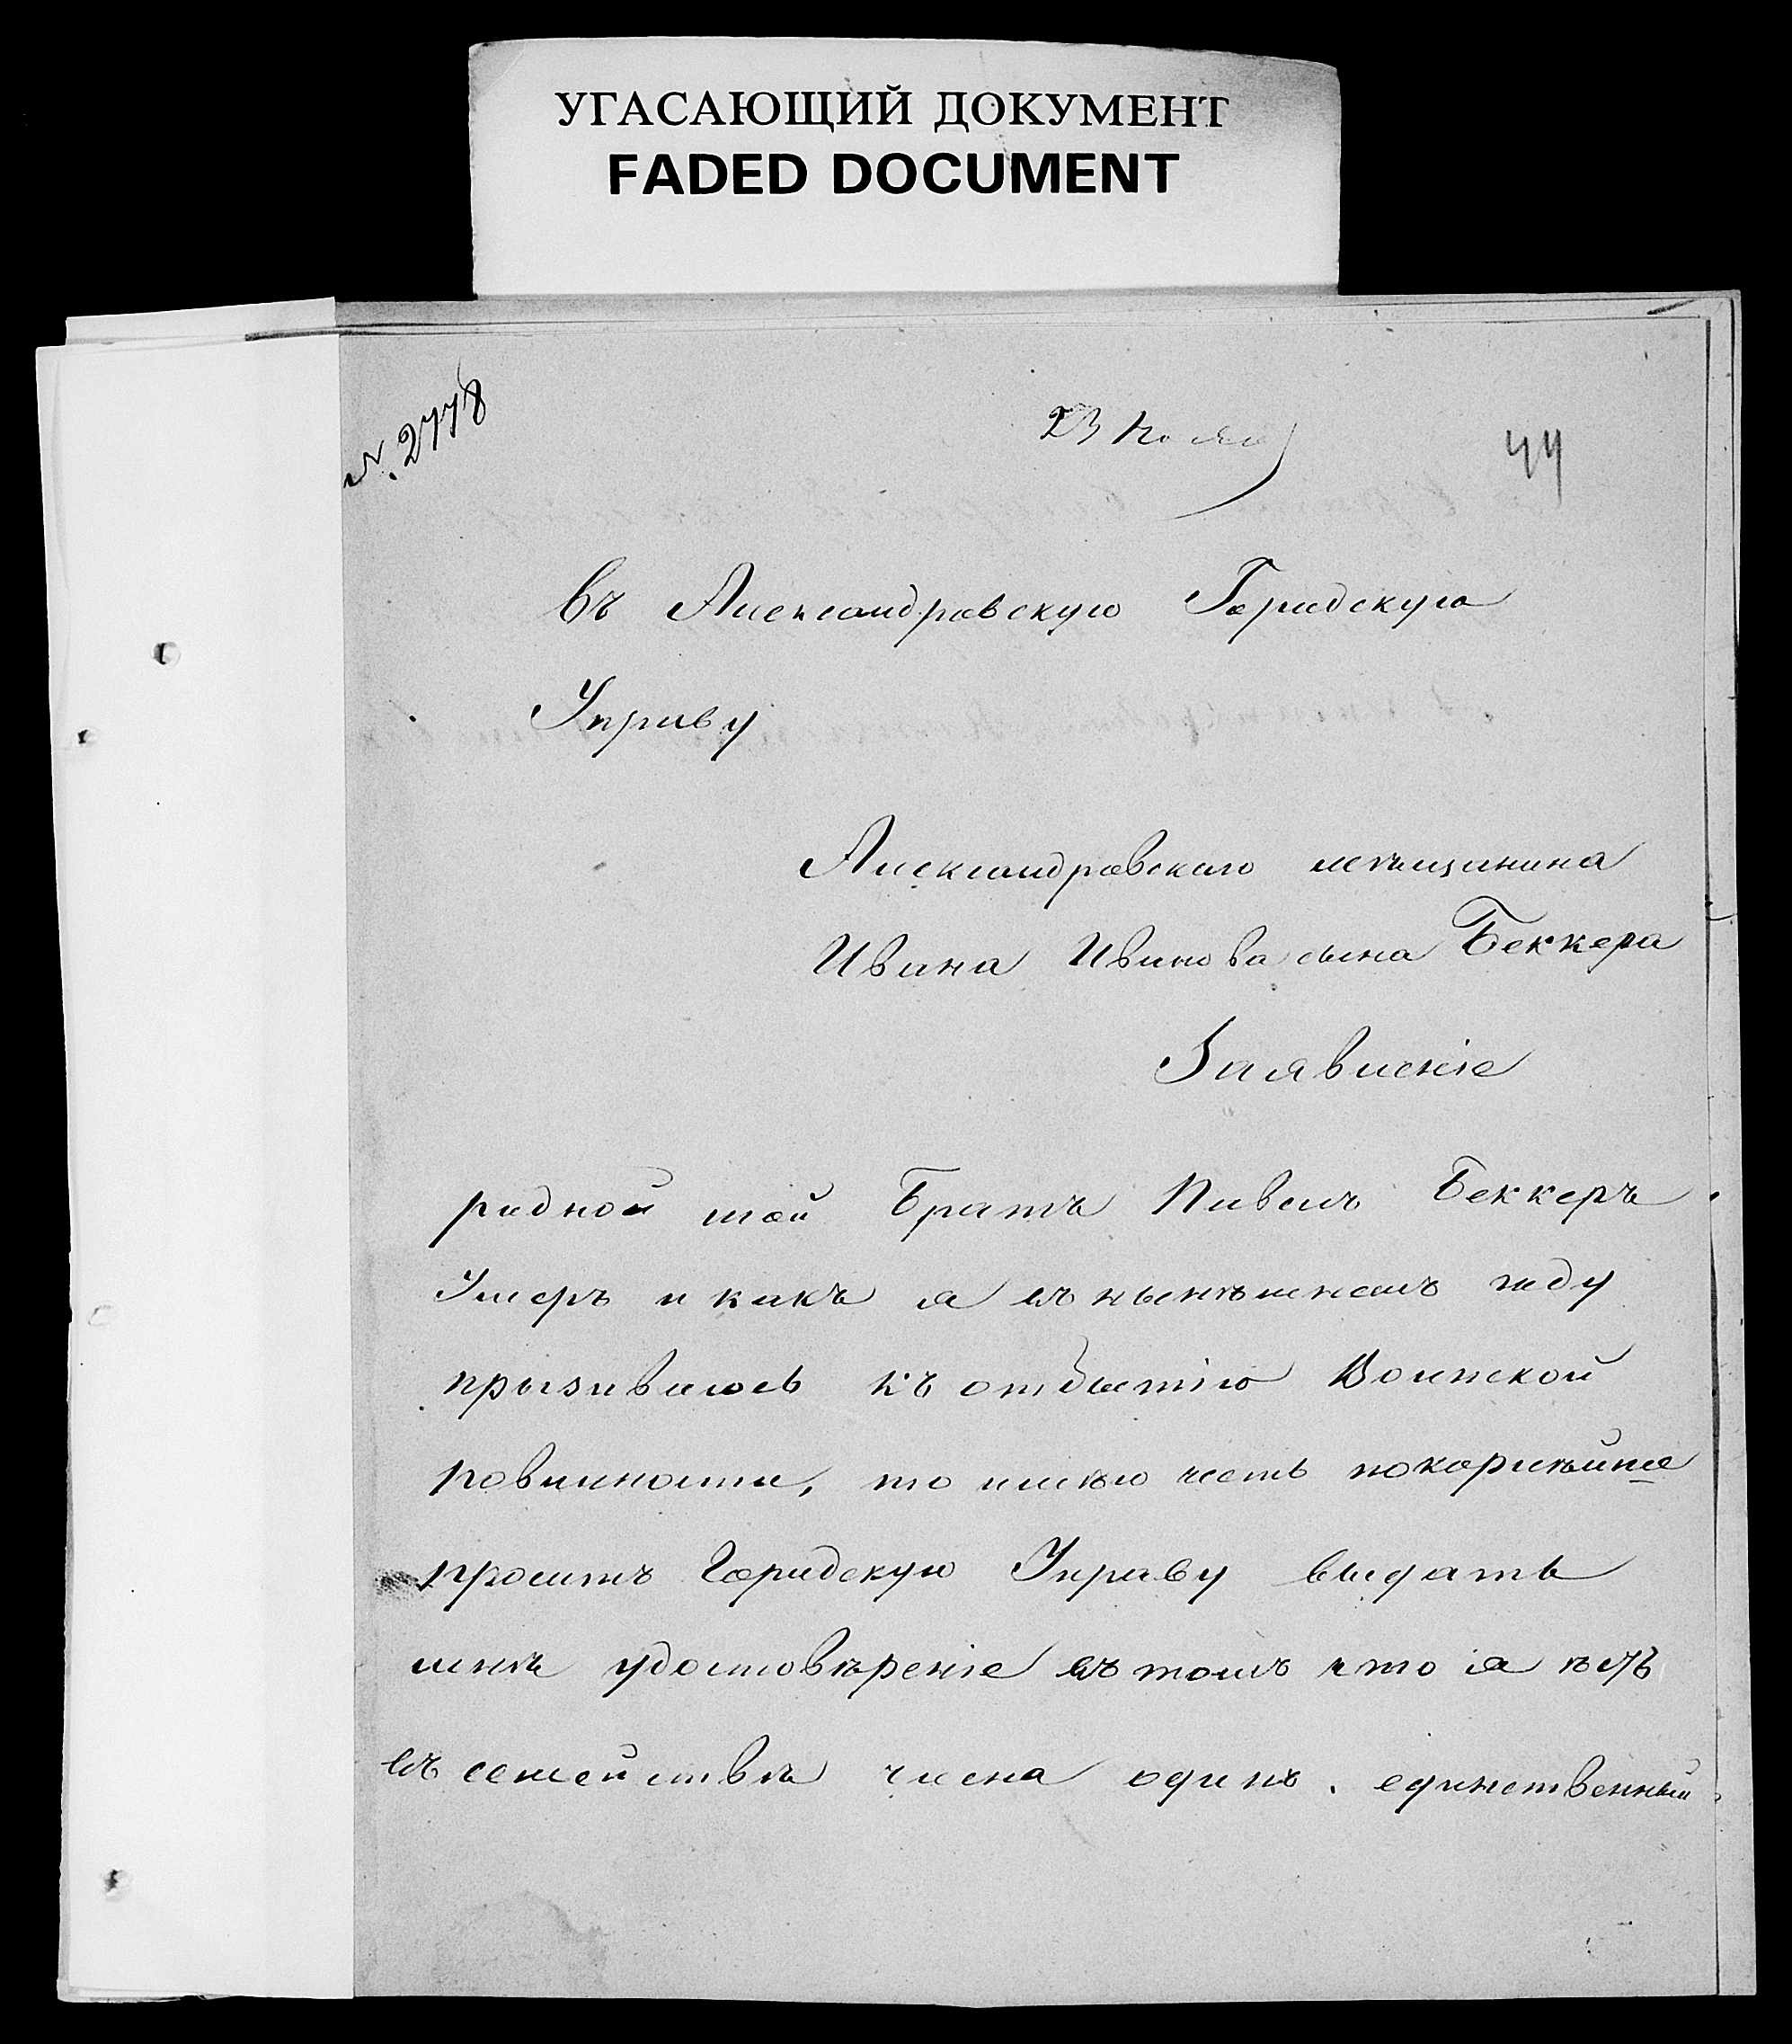 УГАСАЮЩИЙ ДОКУМЕНТ
FADED DOCUMENT
№. 2778
23
44
Въ Александровскую Городскую
Управу
Александровскаго мѣщанина
Ивана Иванова сына Беккера
Заявленіе
родной мой Братъ Павелъ Беккеръ
Умеръ и какъ я въ нынѣшнемъ году
прызываюсь къ отбытію Воинской
повинности, то имѣю честь покорнѣйше
просить Городскую Управу выдать
мнѣ удостовѣреніе въ томъ что я
въ семействѣ члена одинъ. единственный